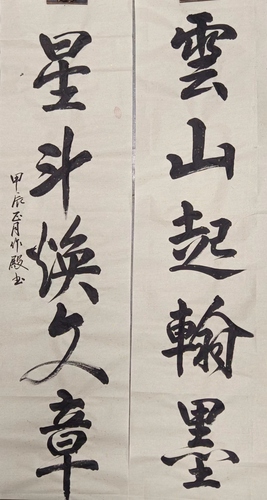 雲山起翰墨
星斗焕文章
甲辰正月作殿书